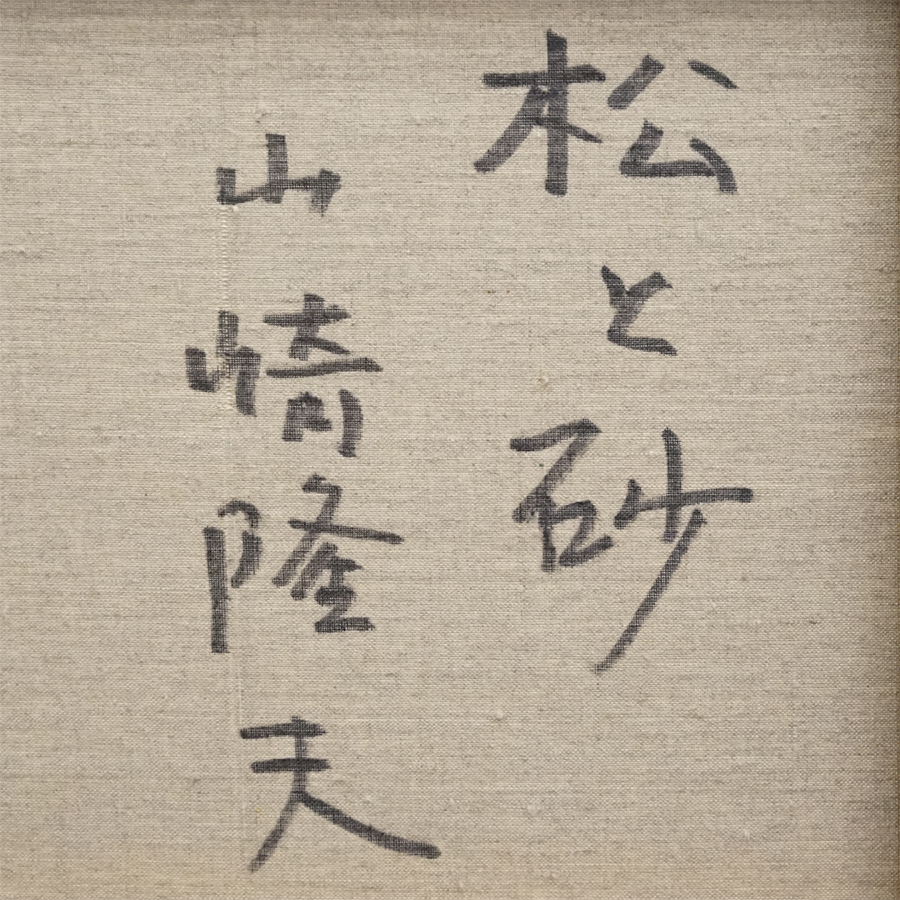 松と砂
山崎隆夫